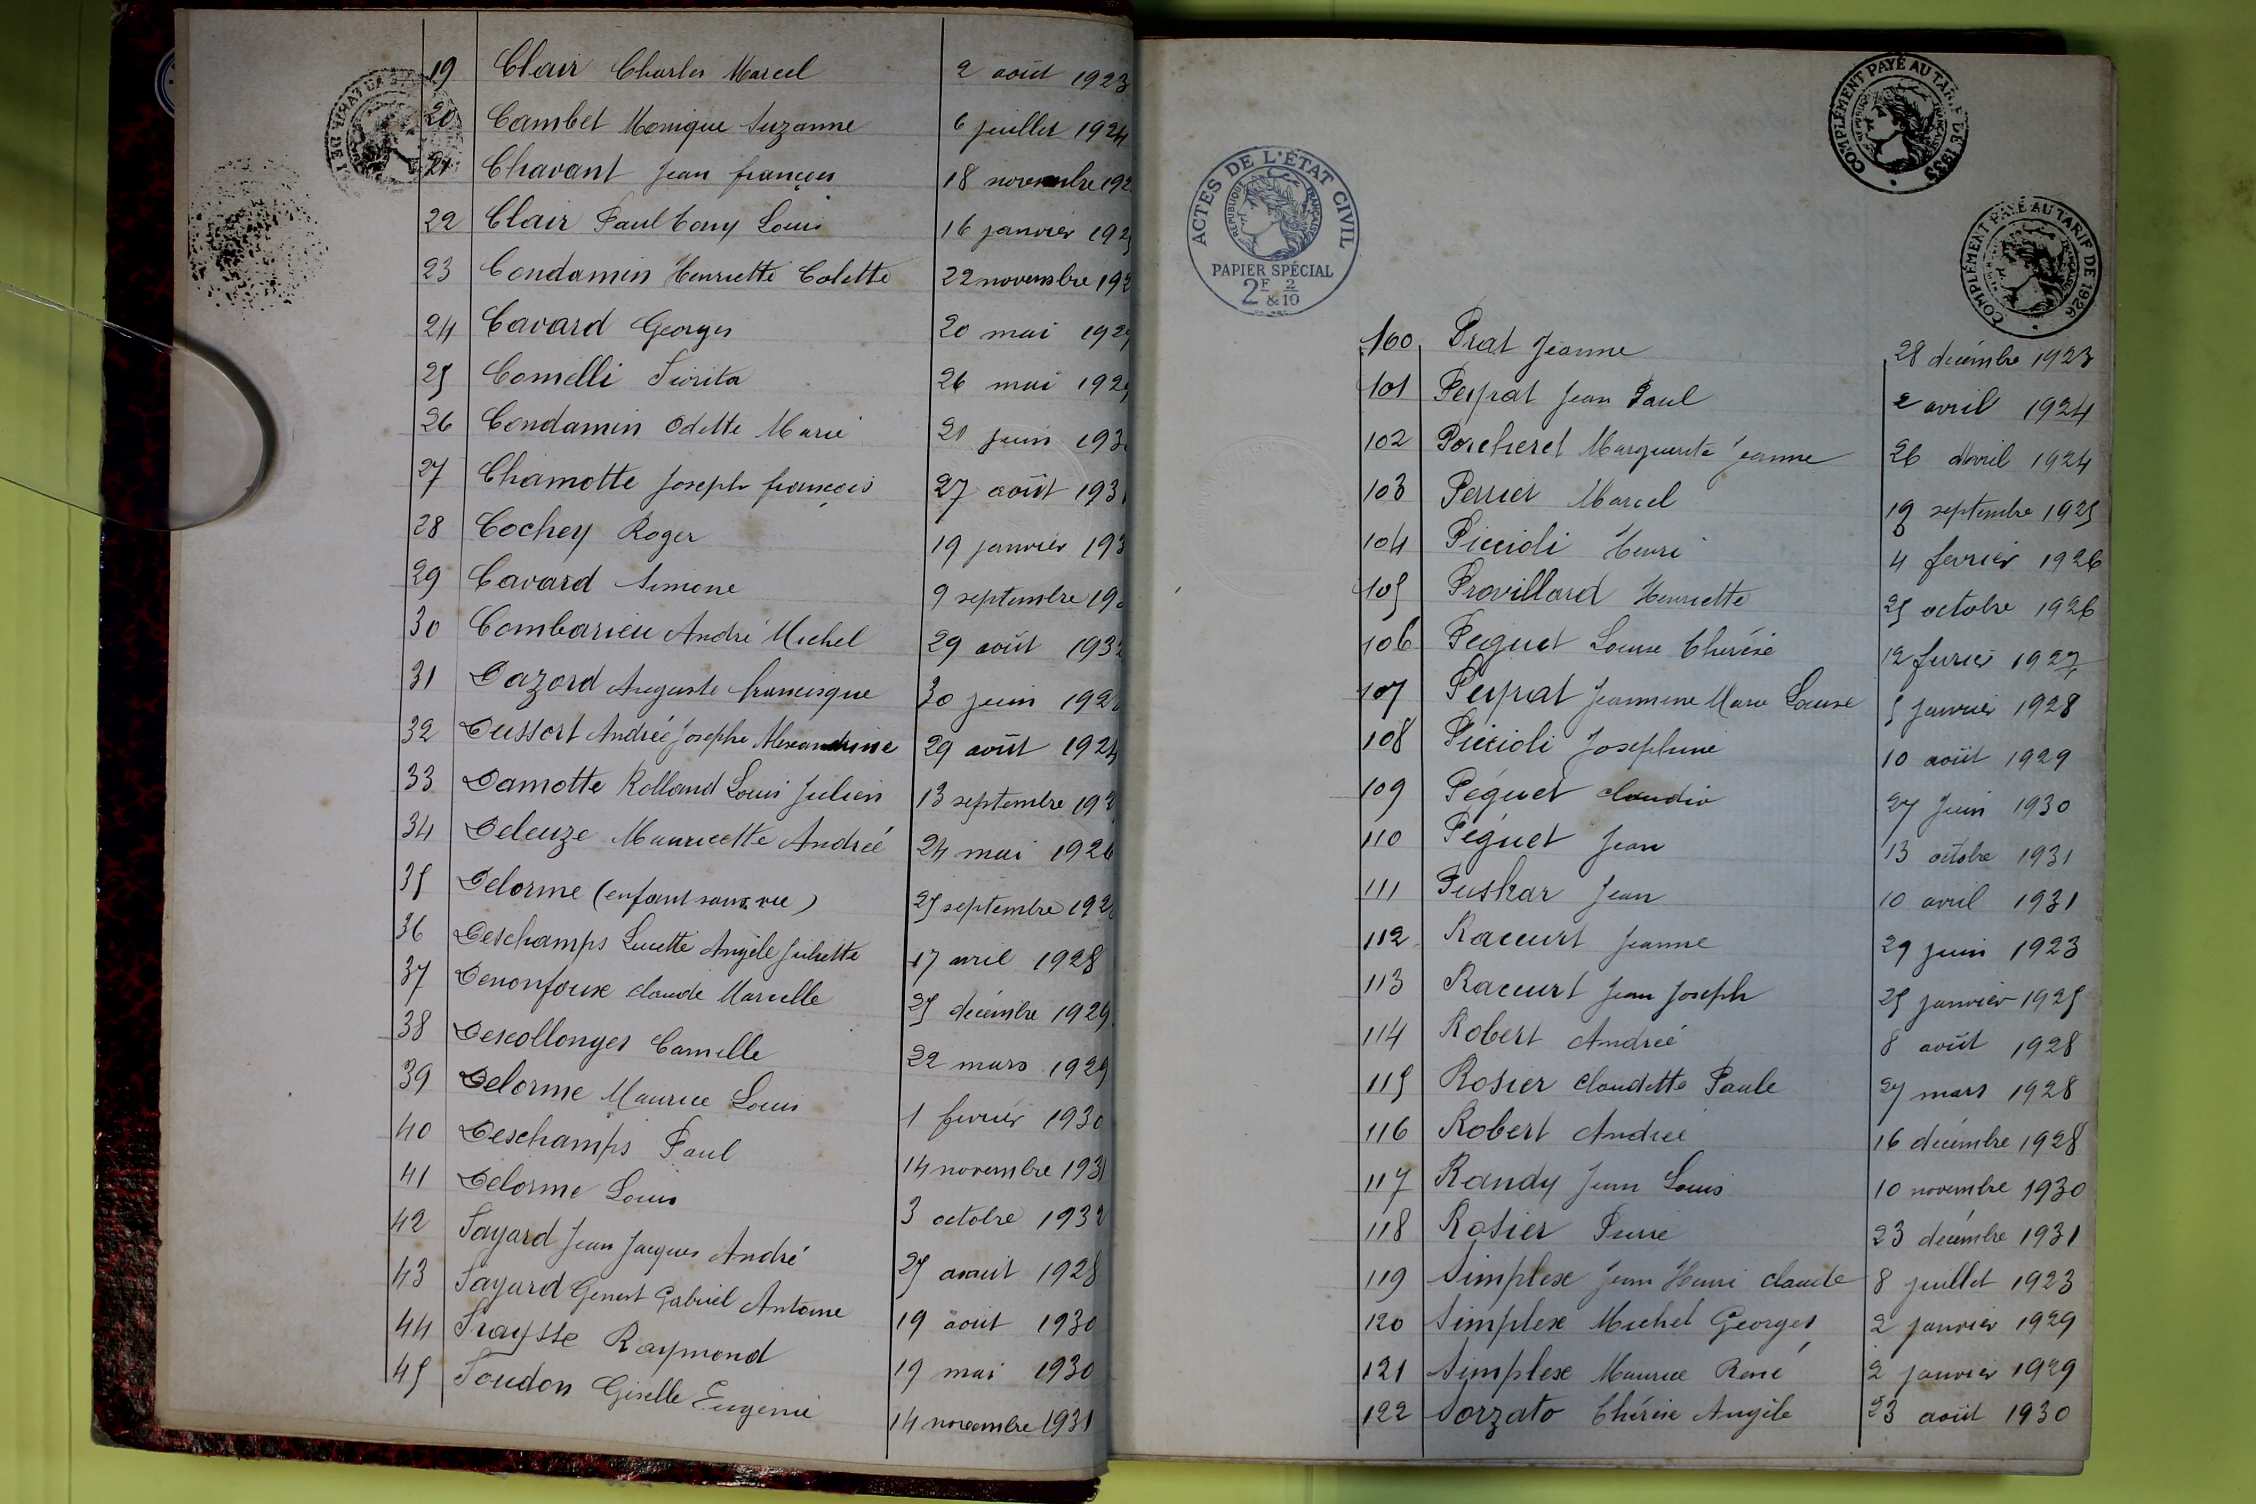 19 Clair Charles Marcel 2 août 1923
20 Cambet Monique Suzanne 6 juillet 1924
21 Chavant Jean françois 18 novembre 192
22 Clair Paul Tony Louis 16 janvier 192
23 Condamin Henriette Colette 22 novembre 192
24 Cavard Georges 20 mai 1929
25 Comelli Fiorita 26 mai 1929
26 Condamin Odette Marie 21 juin 193
27 Chamotte Joseph françois 27 août 1931
28 Cochey Roger 19 janvier 193
29 Cavard Simone 9 septembre 19
30 Combarieu André Michel 29 août 1932
31 Dazord Auguste francisque 30 juin 192
32 Dussort Andrée Josèphe Alexandrine 29 août 1924
33 Damotte Rolland Louis Julien 13 septembre 192
34 Deleuze Mauricette Andrée 24 mai 1926
35 Delorme (enfant sans vie) 25 septembre 192
36 Deschamps Lucette Angèle Juliette 17 avril 1928
37 Denonfoux claude Marcelle 25 décembre 1929
38 Descollonges Camille 22 mars 1929
39 Delorme Maurice Louis 1 février 1930
40 Deschamps Paul 14 novembre 1931
41 Delorme Louis 3 octobre 1932
42 Fayard Jean Jacques André 25 août 1928
43 Fayard Genest Gabriel Antoine 19 août 1930
44 Fraysse Raymond 19 mai 1930
45 Foudon Giselle Eugénie 14 novembre 1931
COMPLÉMENT PAYÉ AU TARIF DE 1935
ACTES DE L'ÉTAT CIVIL
RÉPUBLIQUE FRANÇAISE
PAPIER SPÉCIAL
2F & 2/10
COMPLÉMENT PAYÉ AU TARIF DE 1926
100 Prat Jeanne 28 décembre 1923
101 Peyrat Jean Paul 2 avril 1924
102 Porcheret Marguerite Jeanne 26 avril 1924
103 Perrier Marcel septembre 1925
104 Piccioli Henri 4 février 1926
105 Provillard Henriette 25 octobre 1926
106 Peguet Louise Thérèse 12 février 1927
107 Peyrat Jeannine Marie Louise 5 janvier 1928
108 Piccioli Joséphine 10 août 1929
109 Péguet claudia 27 juin 1930
110 Péguet Jean 13 octobre 1931
111 Puskar Jean 10 avril 1931
112 Raccurt Jeanne 29 juin 1923
113 Raccurt Jean Joseph 25 janvier 1925
114 Robert Andrée 8 août 1928
115 Rosier Claudette Paule 27 mars 1928
116 Robert Andrée 16 décembre 1928
117 Randy Jean Louis 10 novembre 1930
118 Rosier Pierre 23 décembre 1931
119 Simplex Jean Henri claude 8 juillet 1923
120 Simplex Michel Georges 2 janvier 1929
121 Simplex Maurice René 2 janvier 1929
122 Sorzato Thérèse Angèle 23 août 1930